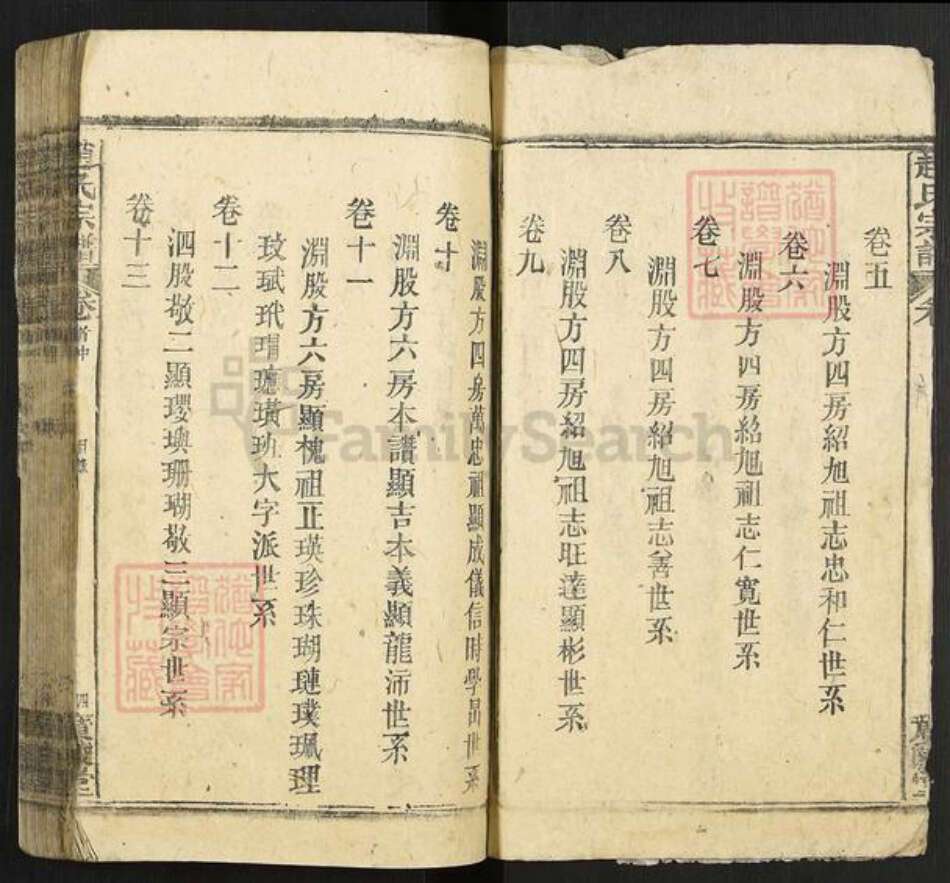 趙氏宗譜
卷五
淵股方四房紹旭祖志忠和仁世系
卷六
淵股方四房紹旭祖志仁寬世系
卷七
淵股方四房紹旭祖志善世系
卷八
淵股方四房紹旭祖志旺達顯彬世系
卷九
淵股方四房萬忠祖顯成儀信時學昌世系
卷十
淵股方六房本譜顯吉本義顯龍沛世系
卷十一
淵股方六房顯槐祖正瑛珍珠瑚璉璞珮理
玟珷玳瑁璁璜玧大字派世系
卷十二
泗股敬二顯瓔璵珊瑚敬三顯宗世系
卷十三
趙氏宗譜
卷首中
目錄
四
FamilySearch